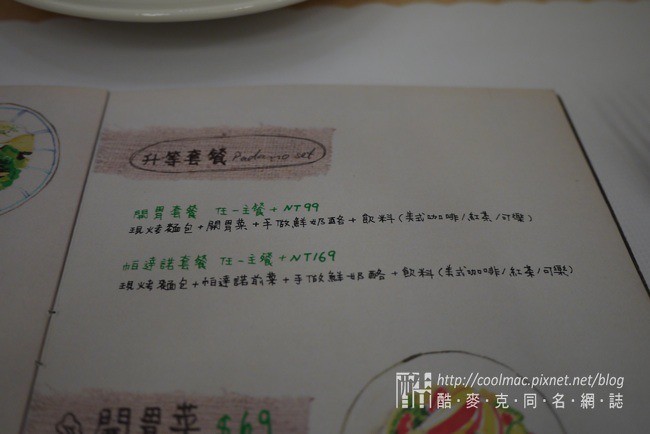 升等套餐 Padano set
開胃套餐 任一主餐+NT99
現烤麵包+開胃菜+手做鮮奶酪+飲料(美式咖啡/紅茶/可樂)
帕達諾套餐 任一主餐+NT169
現烤麵包+帕達諾前菜+手做鮮奶酪+飲料(美式咖啡/紅茶/可樂)
開胃菜 $69
http://coolmac.pixnet.net/blog
酷·麥·克·同·名·網·誌